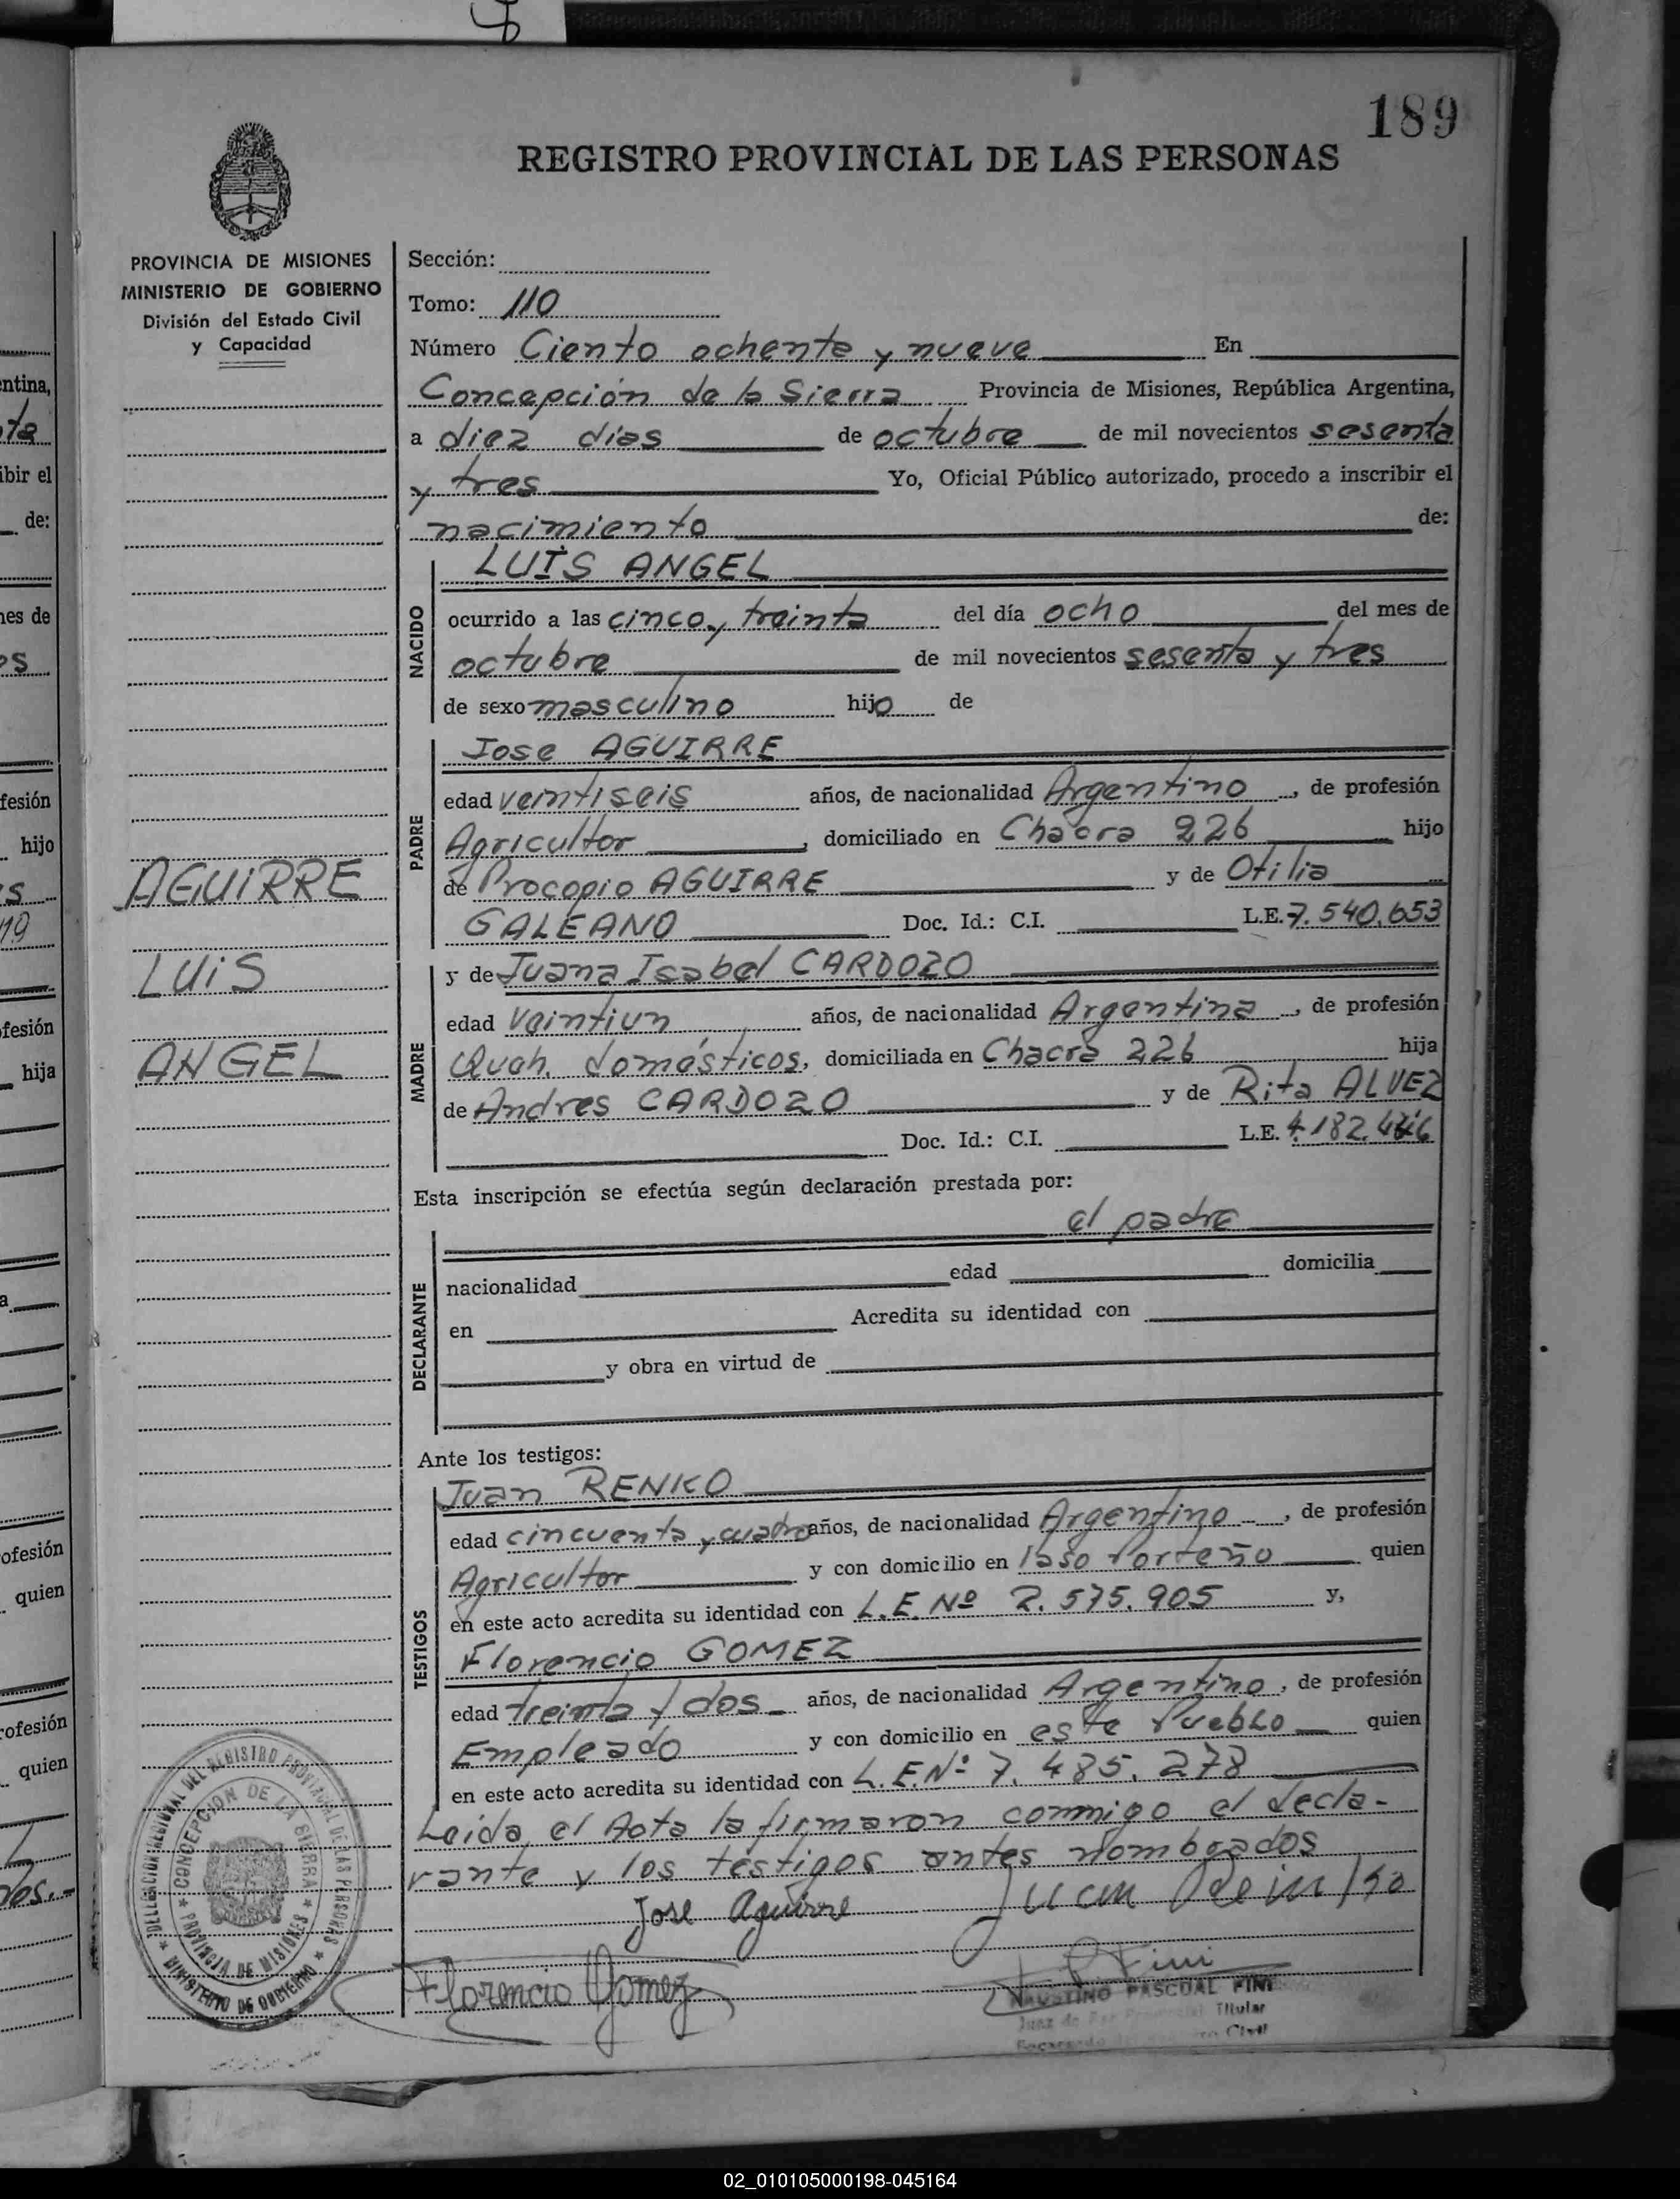 189
REGISTRO PROVINCIAL DE LAS PERSONAS
PROVINCIA DE MISIONES
MINISTERIO DE GOBIERNO
División del Estado Civil
y Capacidad
AGUIRRE
LUIS
ANGEL
Sección:
Tomo: 110
Número Ciento ochenta y nueve En
Concepción de la Sierra Provincia de Misiones, República Argentina,
a diez días de octubre de mil novecientos sesenta
y tres Yo, Oficial Público autorizado, procedo a inscribir el
nacimiento de:
NACIDO
LUIS ANGEL
ocurrido a las cinco y treinta del día ocho del mes de
octubre de mil novecientos sesenta y tres
de sexo masculino hijo de
PADRE
Jose AGUIRRE
edad veintiseis años, de nacionalidad Argentino, de profesión
Agricultor, domiciliado en Chacra 226 hijo
de Procopio AGUIRRE y de Otilia
GALEANO Doc. Id.: C.I. L.E. 7.540.653
MADRE
y de Juana Isabel CARDOZO
edad Veintiun años, de nacionalidad Argentina, de profesión
Queh. domésticos, domiciliada en Chacra 226 hija
de Andres CARDOZO y de Rita ALVEZ
Doc. Id.: C.I. L.E.
Esta inscripción se efectúa según declaración prestada por:
el padre
DECLARANTE
nacionalidad edad domicilia
en Acredita su identidad con
y obra en virtud de
Ante los testigos:
TESTIGOS
Juan RENKO
edad cincuenta y cuatro años, de nacionalidad Argentino, de profesión
Agricultor y con domicilio en Paso Porteño quien
en este acto acredita su identidad con L.E. Nº 2.575.905 y,
Florencio GOMEZ
edad treinta y dos años, de nacionalidad Argentino, de profesión
Empleado y con domicilio en este Pueblo quien
en este acto acredita su identidad con L.E. Nº 7.485.278
Leida el Acta la firmaron conmigo el decla-
rante y los testigos antes nombrados
Jose Aguirre Juan
Florencio Gomez
FAUSTINO PASCUAL FINI
Juez de Paz Titular
DELEGACION REGIONAL DEL REGISTRO PROVINCIAL DE LAS PERSONAS
CONCEPCION DE LA SIERRA
PROVINCIA DE MISIONES
MINISTERIO DE GOBIERNO
02_010105000198-045164